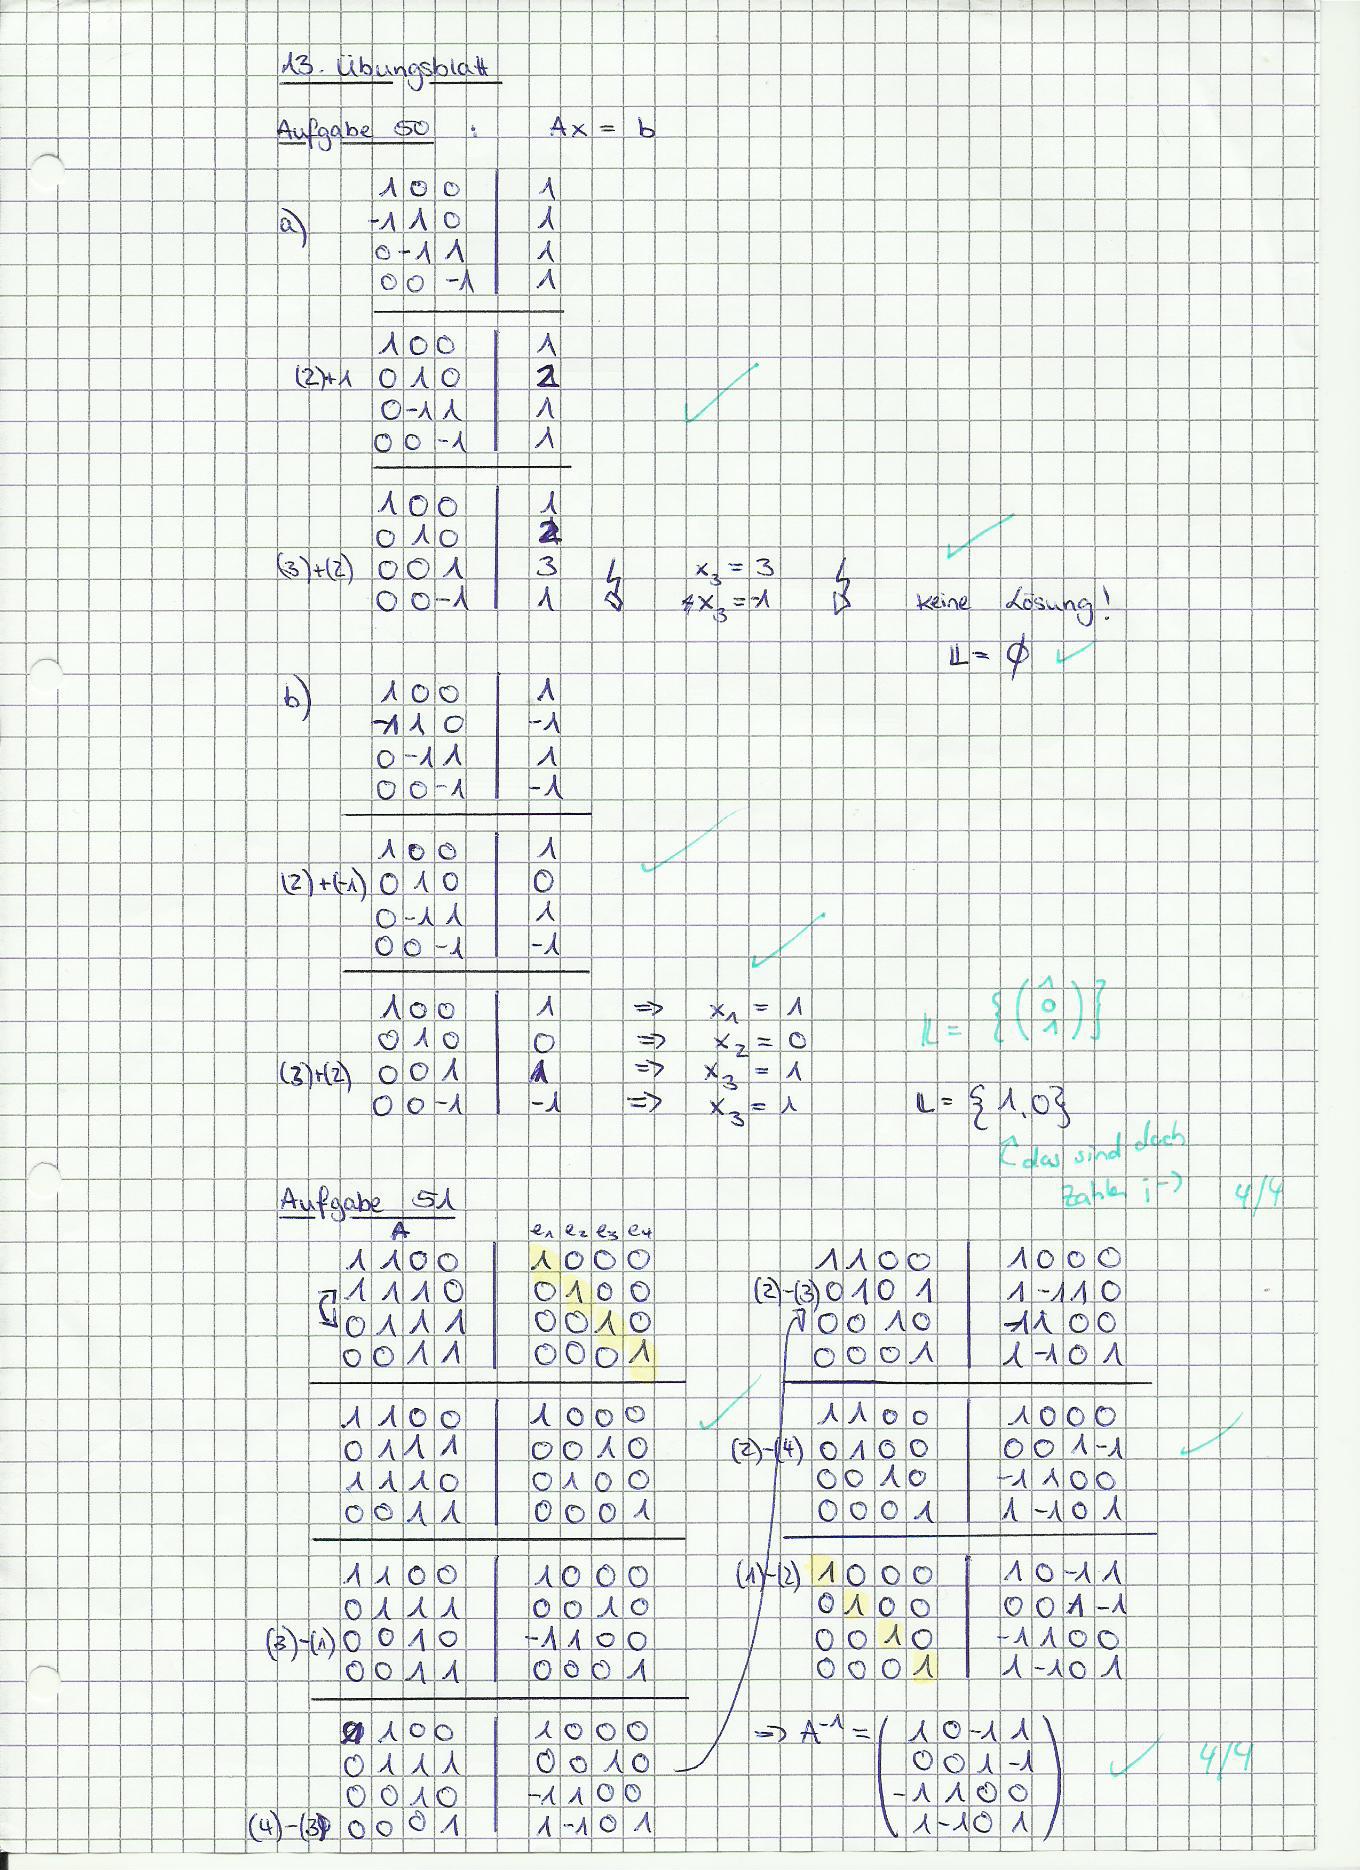 13. Übungsblatt
Aufgabe 50 : Ax = b
a)
1 0 0 | 1
-1 1 0 | 1
0 -1 1 | 1
0 0 -1 | 1
1 0 0 | 1
(2)+1 0 1 0 | 2
0 -1 1 | 1
0 0 -1 | 1
1 0 0 | 1
0 1 0 | 2
(3)+(2) 0 0 1 | 3 ↯ x₃ = 3 ↯
0 0 -1 | 1 x₃ = -1 keine Lösung!
𝕃 = ∅
b)
1 0 0 | 1
-1 1 0 | -1
0 -1 1 | 1
0 0 -1 | -1
1 0 0 | 1
(2)+(-1) 0 1 0 | 0
0 -1 1 | 1
0 0 -1 | -1
1 0 0 | 1 => x₁ = 1
0 1 0 | 0 => x₂ = 0
(3)+(2) 0 0 1 | 1 => x₃ = 1
0 0 -1 | -1 => x₃ = 1
𝕃 = {(1 0 1)}
𝕃 = {1,0}
das sind doch
Zahlen ;-) 4/4
Aufgabe 51
A e₁ e₂ e₃ e₄
1 1 0 0 | 1 0 0 0
1 1 1 0 | 0 1 0 0
0 1 1 1 | 0 0 1 0
0 0 1 1 | 0 0 0 1
1 1 0 0 | 1 0 0 0
0 1 1 1 | 0 0 1 0
1 1 1 0 | 0 1 0 0
0 0 1 1 | 0 0 0 1
1 1 0 0 | 1 0 0 0
0 1 1 1 | 0 0 1 0
(3)-(1) 0 0 1 0 | -1 1 0 0
0 0 1 1 | 0 0 0 1
1 1 0 0 | 1 0 0 0
0 1 1 1 | 0 0 1 0
0 0 1 0 | -1 1 0 0
(4)-(3) 0 0 0 1 | 1 -1 0 1
1 1 0 0 | 1 0 0 0
(2)-(3) 0 1 0 1 | 1 -1 1 0
0 0 1 0 | -1 1 0 0
0 0 0 1 | 1 -1 0 1
1 1 0 0 | 1 0 0 0
(2)-(4) 0 1 0 0 | 0 0 1 -1
0 0 1 0 | -1 1 0 0
0 0 0 1 | 1 -1 0 1
(1)-(2) 1 0 0 0 | 1 0 -1 1
0 1 0 0 | 0 0 1 -1
0 0 1 0 | -1 1 0 0
0 0 0 1 | 1 -1 0 1
=> A⁻¹ = ( 1 0 -1 1
0 0 1 -1
-1 1 0 0
1 -1 0 1 )
4/4